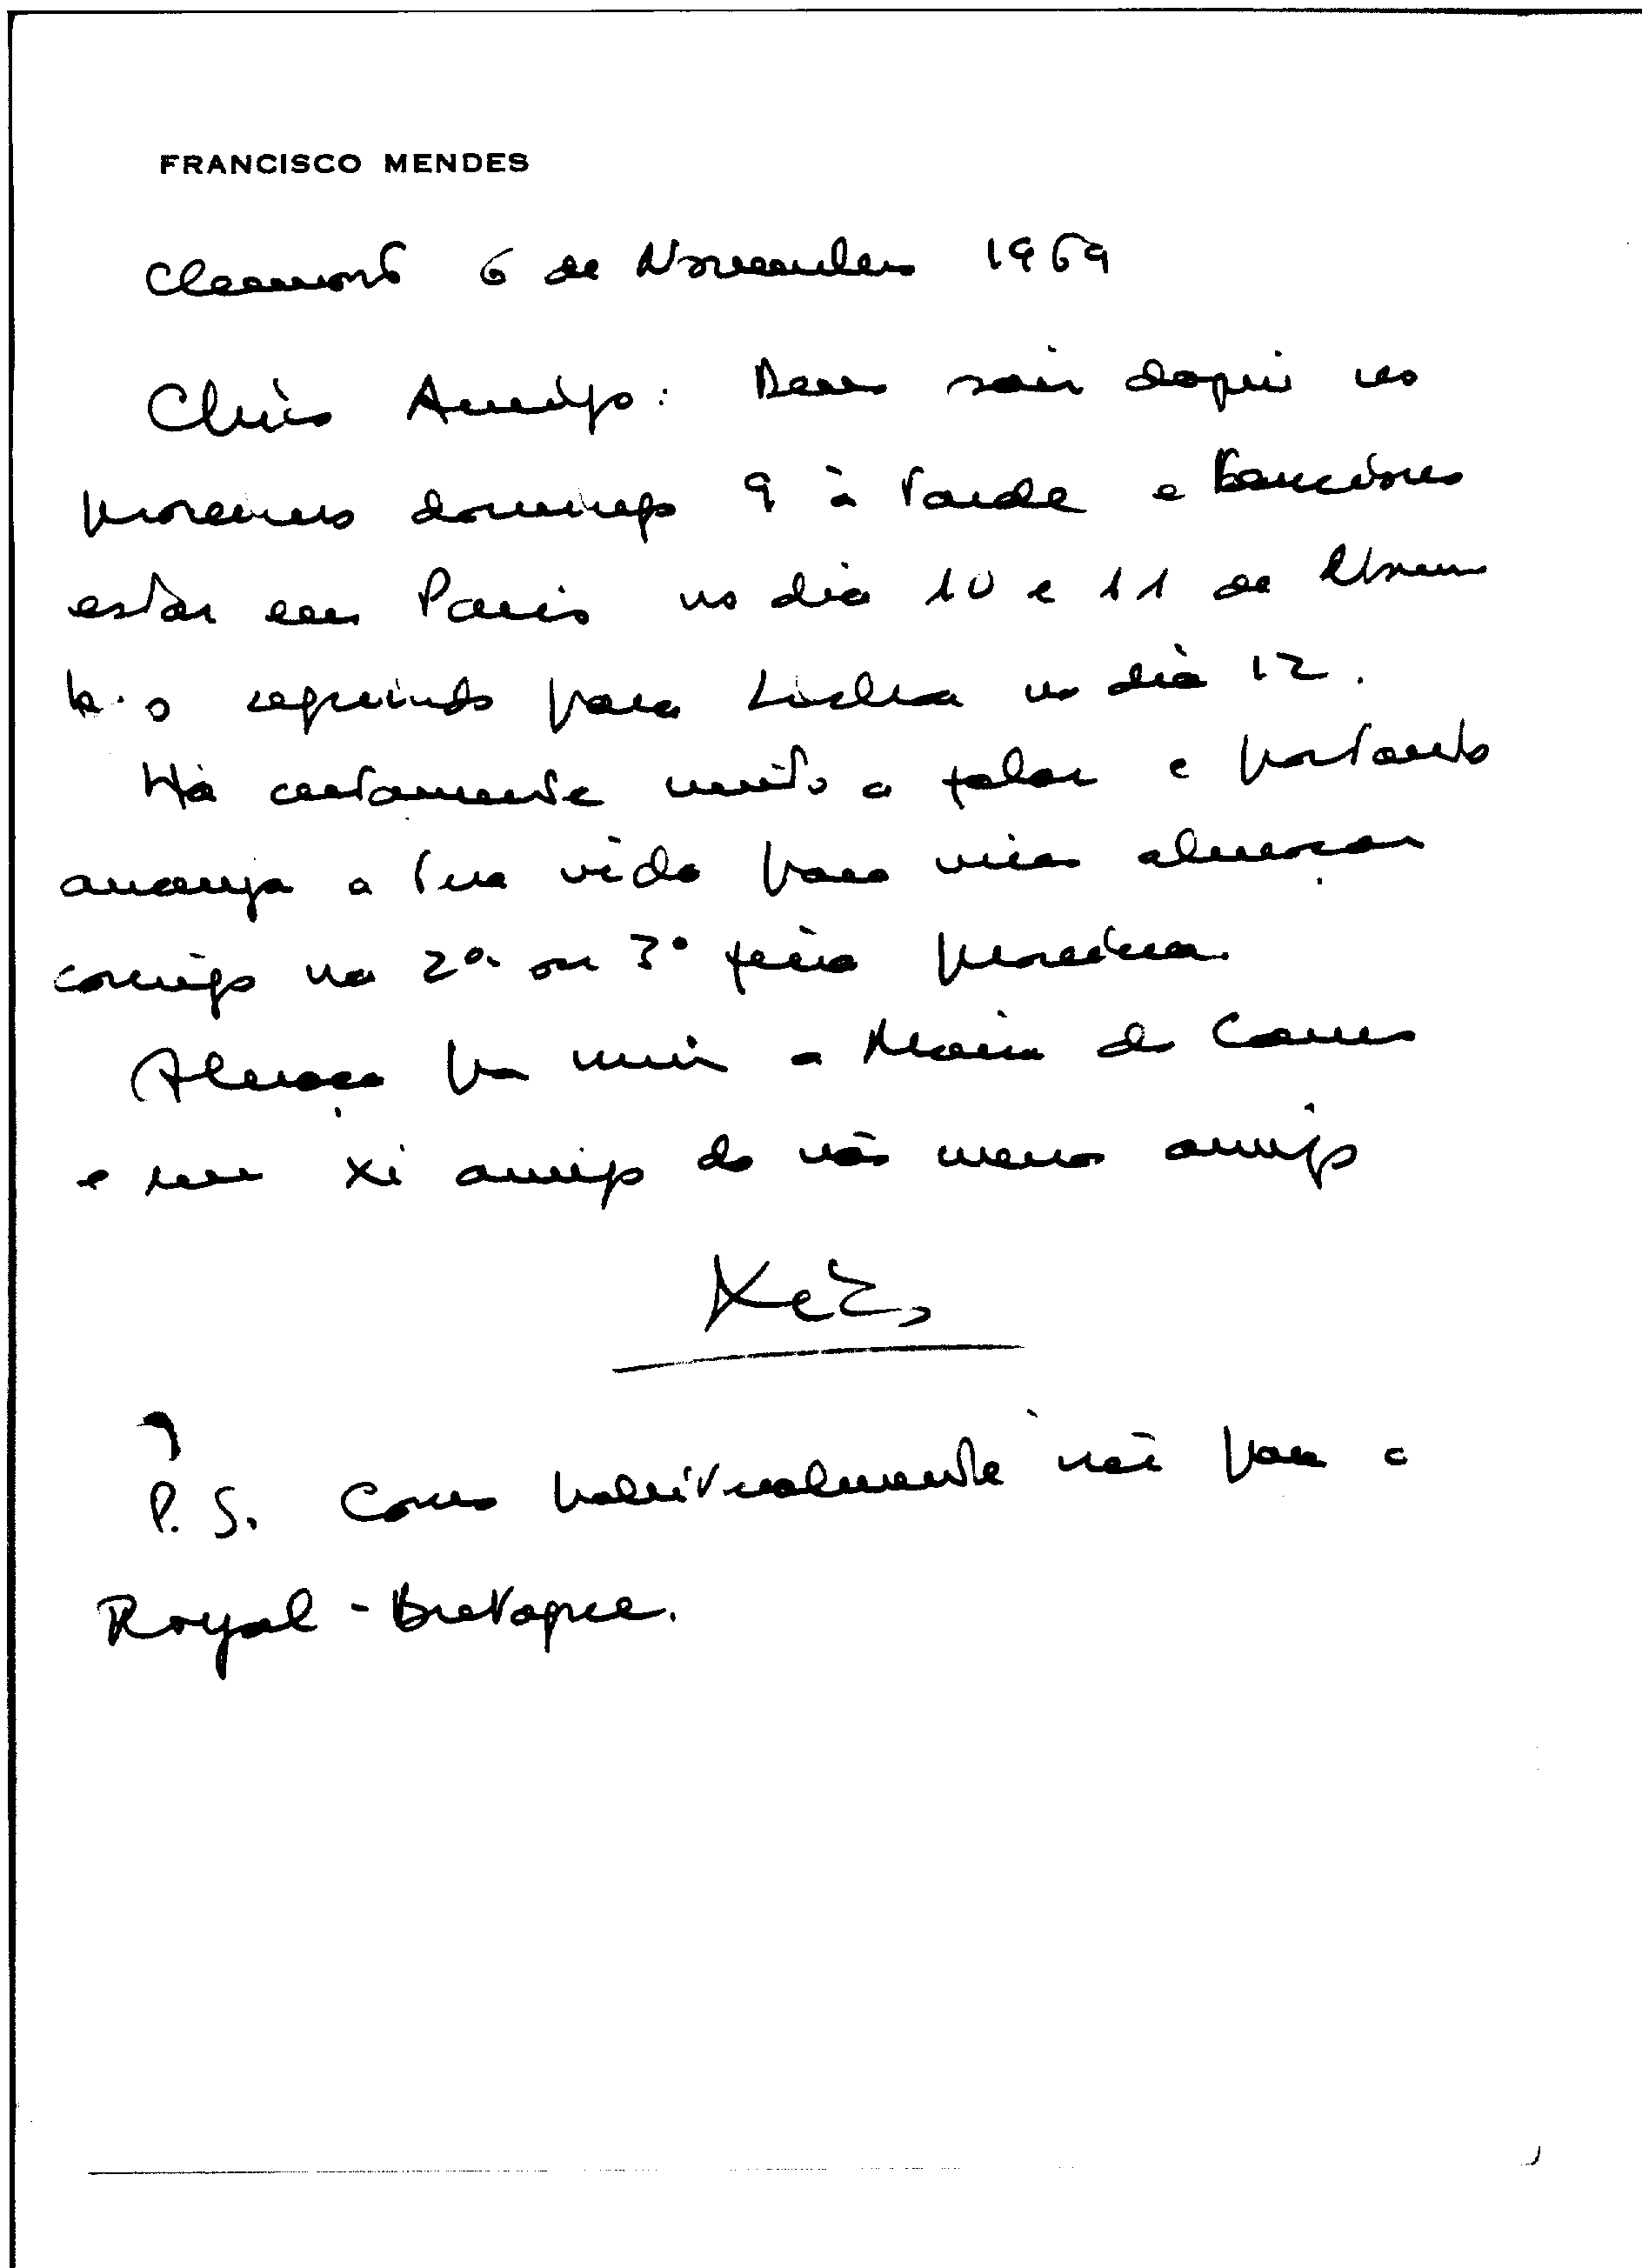 FRANCISCO MENDES
Clermont 6 de Novembro 1969
Amigo: Devo sair daqui no
proximo domingo 9 à tarde e tenciono
estar em Paris no dia 10 e 11 de Novem
bro seguindo para Lisboa no dia 12.
Há certamente muito a falar e portanto
arranja a tua vida para vires almoçar
comigo na 2ª ou 3ª feira proxima.
Abraça por mim a Maria do Carmo
e um xi amigo do não menos amigo
P.S. Como habitualmente irei para o
Royal-Bretagne.